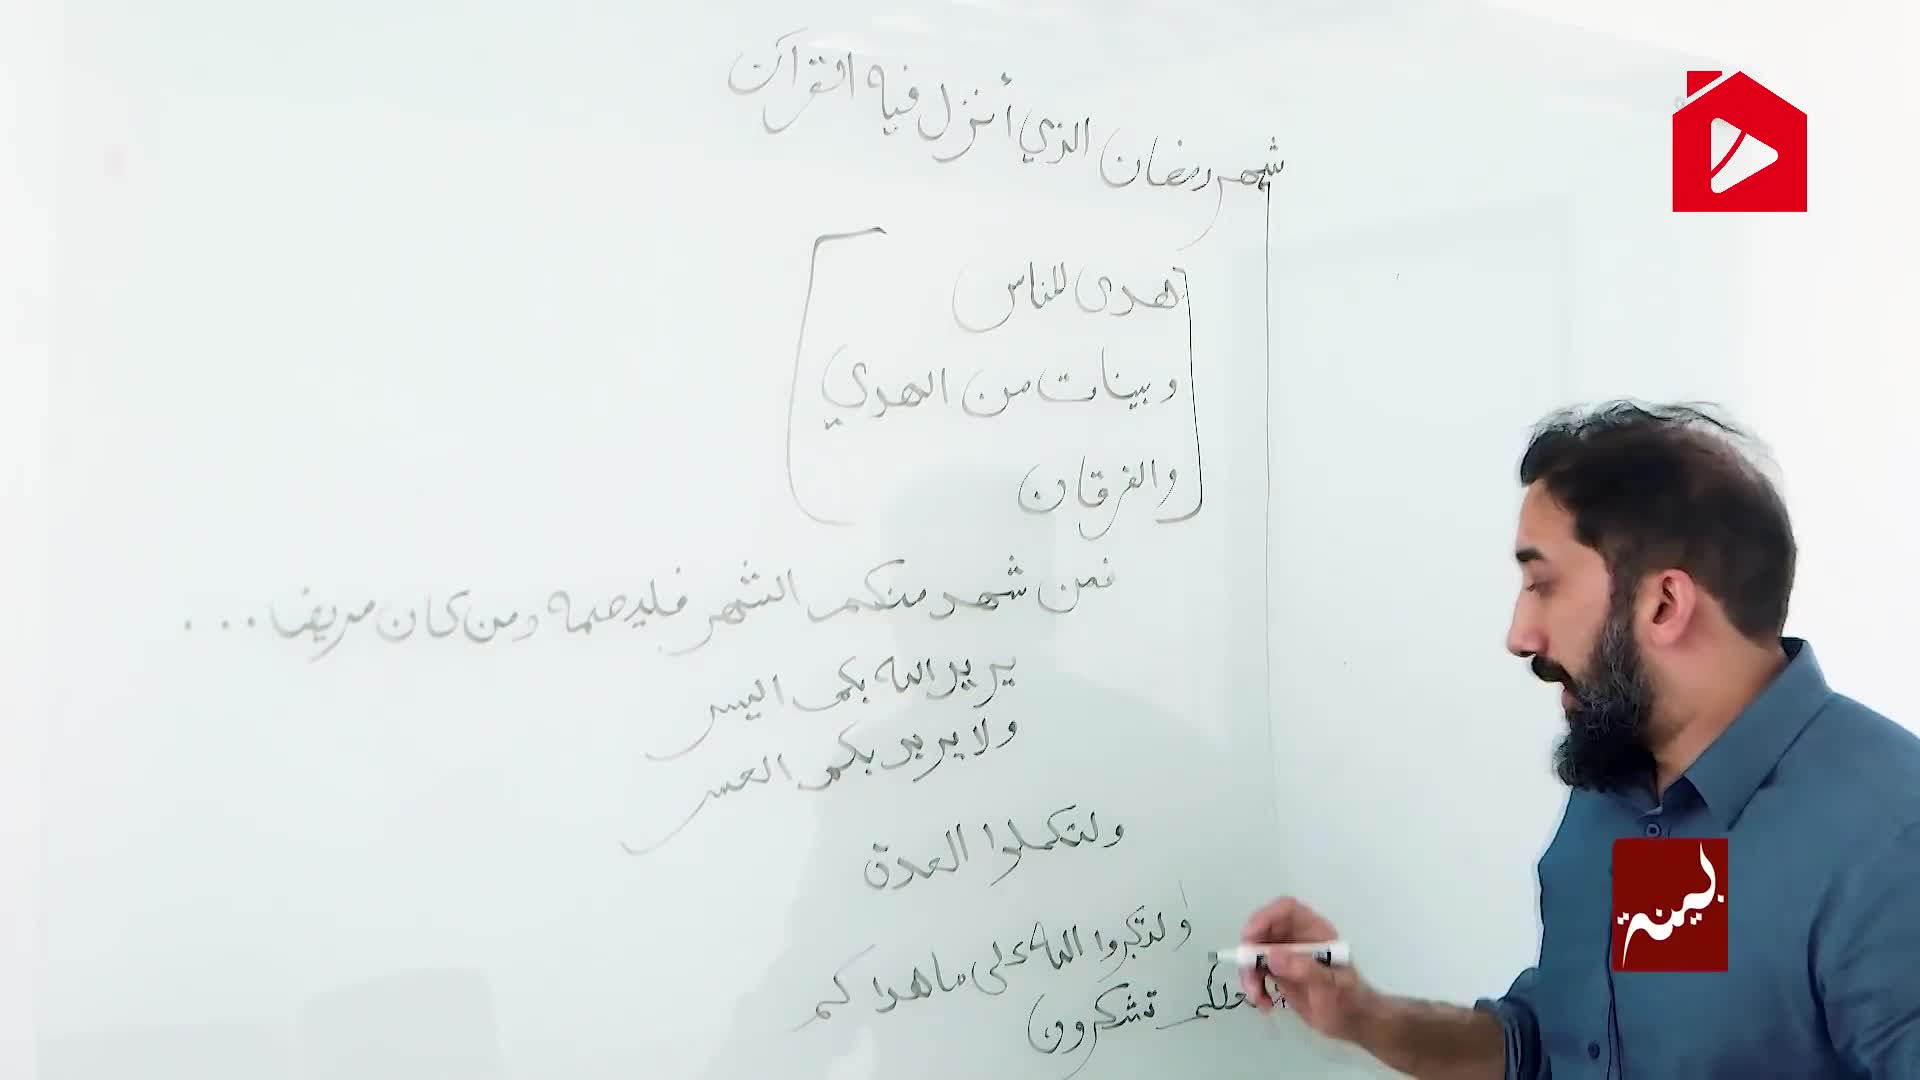 شهر رمضان الذي أنزل فيه القرآن
هدى للناس
وبينات من الهدي
والفرقان
فمن شهد منكم الشهر فليصمه ومن كان مريضا ...
يريد الله بكم اليسر
ولا يريد بكم العسر
ولتكملوا العدة
ولتكبروا الله على ما هداكم
لعلكم تشكرون
بينة